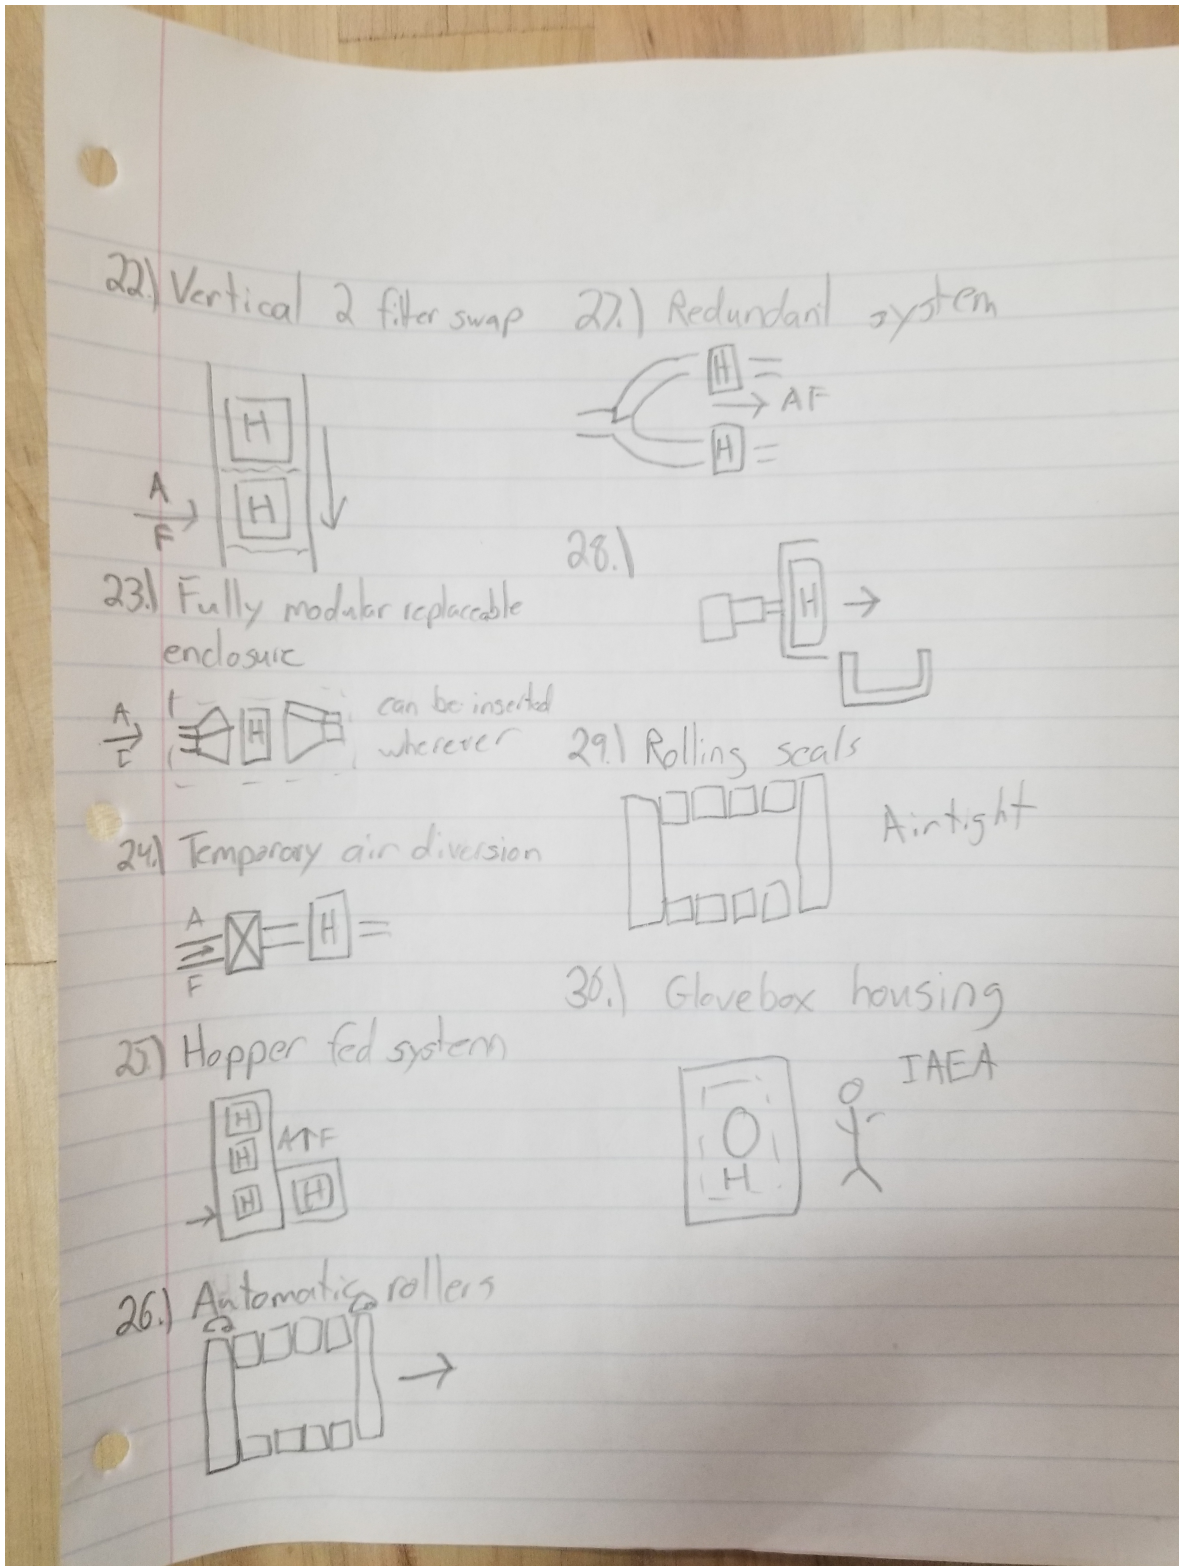 22.) Vertical 2 filter swap
H
H
A
F
23.) Fully modular replaceable
enclosure
A
F
H
can be inserted
wherever
24.) Temporary air diversion
A
F
H
25.) Hopper fed system
H
H
H
A F
H
26.) Automatic rollers
27.) Redundant system
H
AF
H
28.)
H
29.) Rolling seals
Airtight
30.) Glovebox housing
IAEA
H